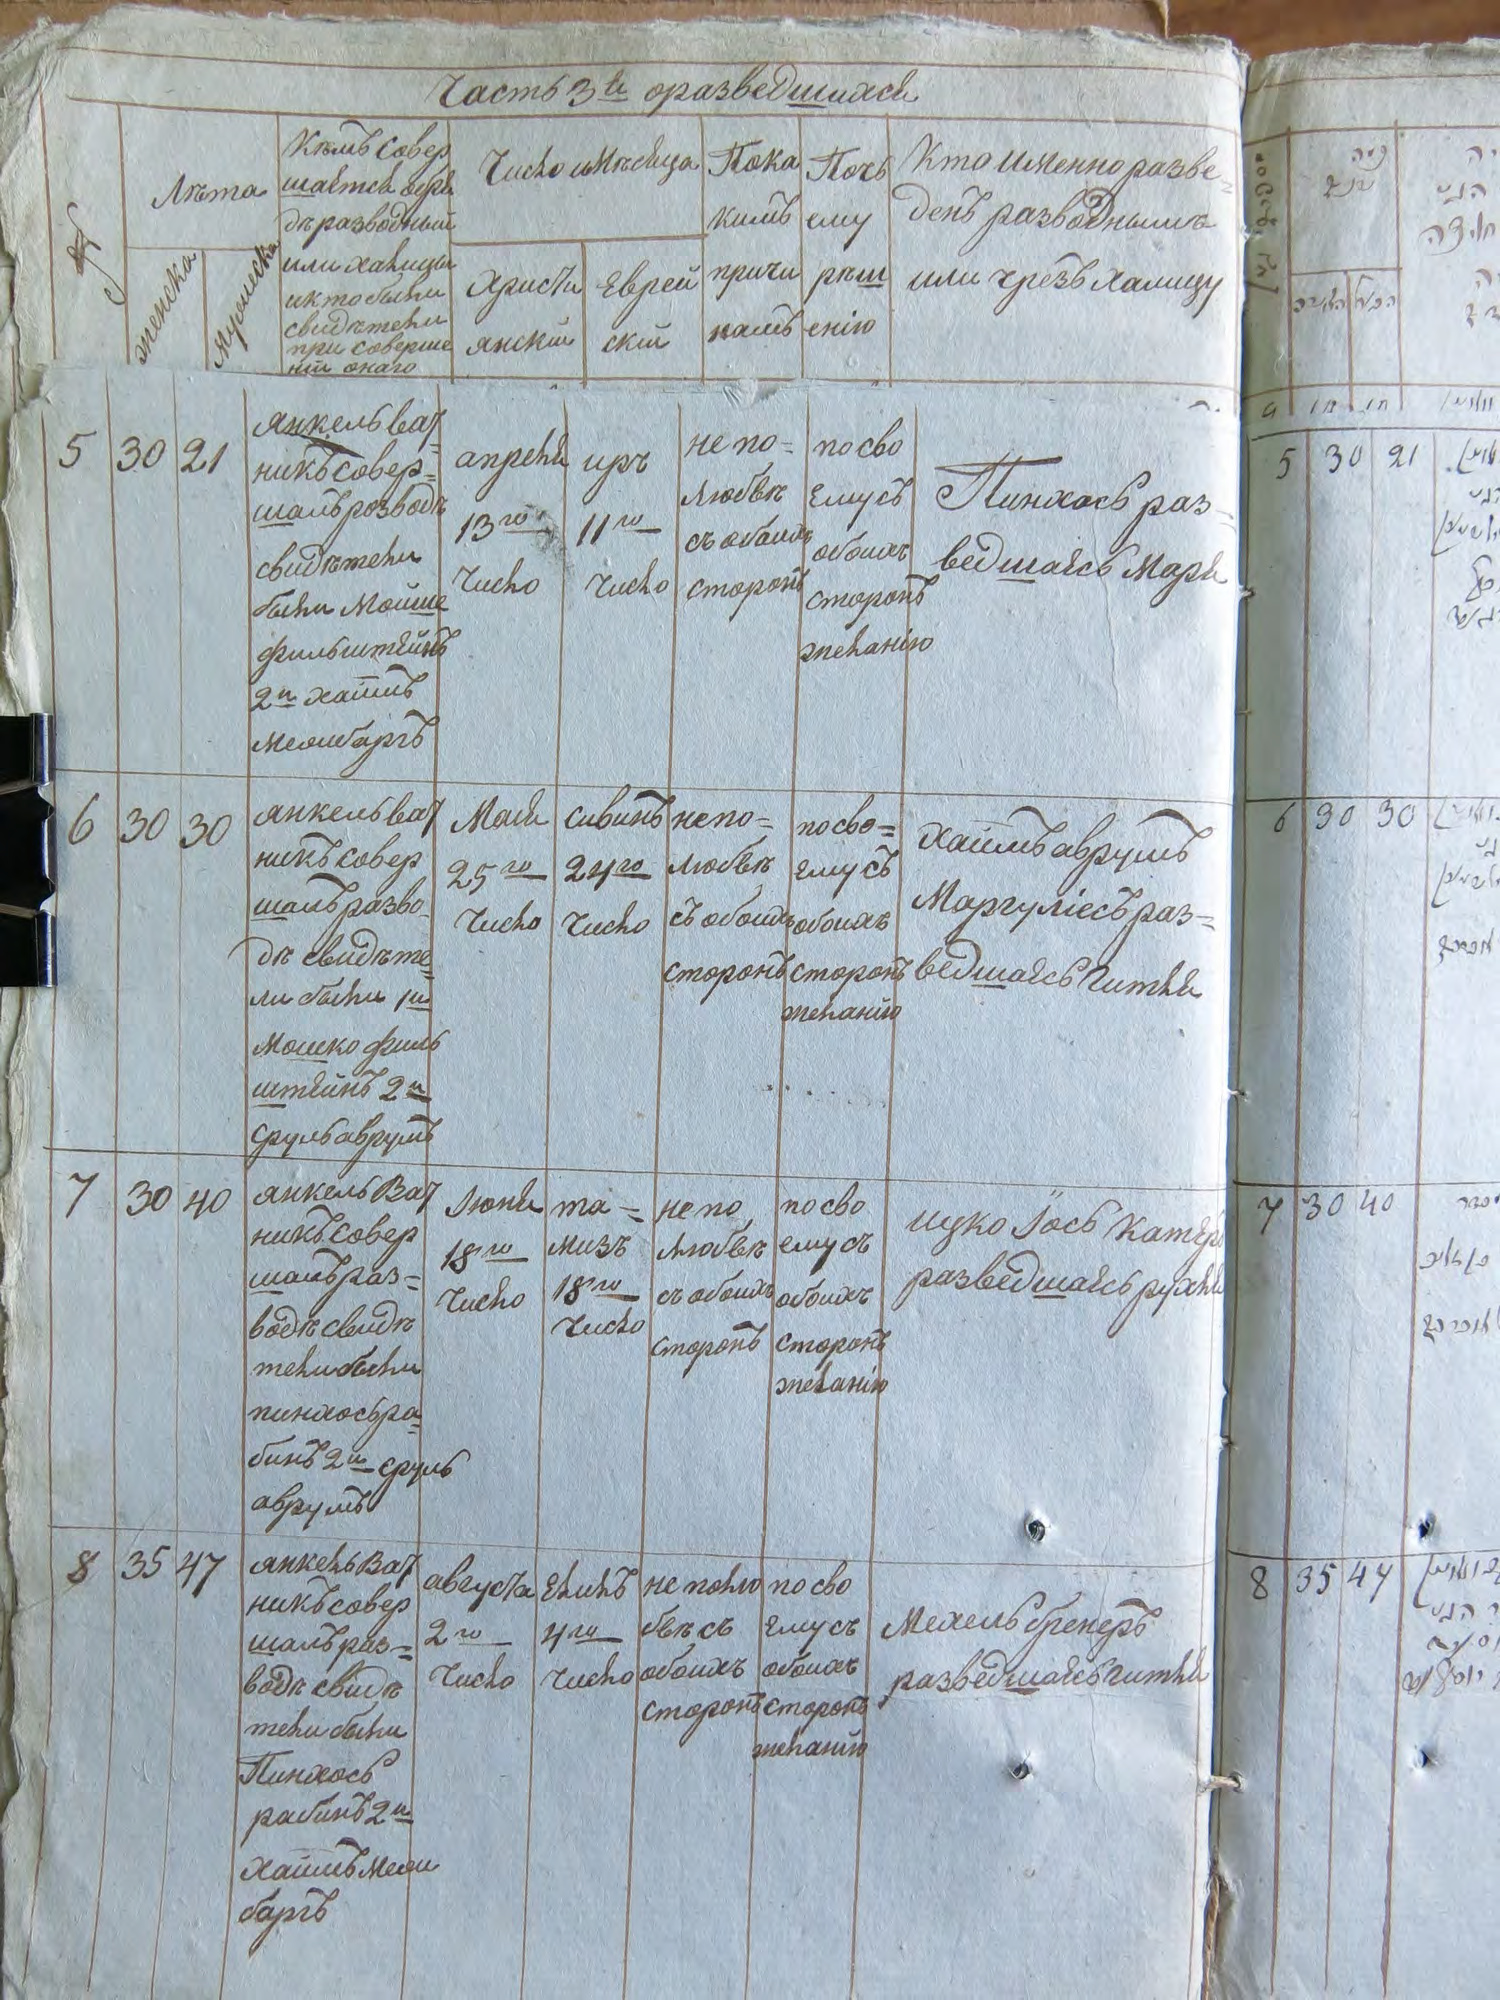 Часть 3ья о разведшихся
№
Лѣта
женска
мужеска
Кѣмъ совер
шается обря
дъ разводный
или халицы
и кто были
свидѣтели
при соверше
нiи онаго
Число и Мѣсяца
Христи
янскiй
Еврей
скiй
По ка
кимъ
причи
намъ
По чь
ему
рѣш
енiю
Кто именно разве-
денъ разводнымъ
или чрезъ халицу
5
30
21
янкель ват
никъ совер=
шалъ розводъ
свидѣтели
были Мойше
фильштейнъ
2й хаимъ
апреля
13го
число
иръ
11го
число
не по=
любвѣ
съ обоихъ
сторонъ
по сво
ему съ
обоихъ
сторонъ
желанiю
Пинхось раз=
ведшаясь Маря
6
30
30
янкель ват
никъ совер
шалъ разво-
дъ свидѣте=
ли были 1й
Мошко филь
штейнъ 2й
сруль аврумъ
Мая
25го
число
сивинъ
24го
число
не по=
любвѣ
съ обоихъ
сторонъ
по сво=
ему съ
обоихъ
сторонъ
желанiю
хаимъ аврумъ
Маргулiесъ раз=
ведшаясь гитля
7
30
40
янкель Ват
никъ совер
шалъ раз=
водъ свидѣ
тели были
пинхось ра=
бинъ 2й сруль
аврумъ
Iюня
18го
число
та=
мизъ
18го
число
не по
любвѣ
съ обоихъ
сторонъ
по сво
ему съ
обоихъ
сторонъ
желанiю
ицко Iось
разведшаясь рухля
8
35
47
янкель Ват
никъ совер
шалъ раз=
водъ свидѣ
тели были
Пинхось
рабинъ 2й
хаимъ
августа
2го
число
Елилъ
4го
число
не полю
бвѣ съ
обоихъ
сторонъ
по сво
ему съ
обоихъ
сторонъ
желанiю
Мехель бренеръ
разведшаясь гитля
5 30 21
6 30 30
7 30 40
8 35 47